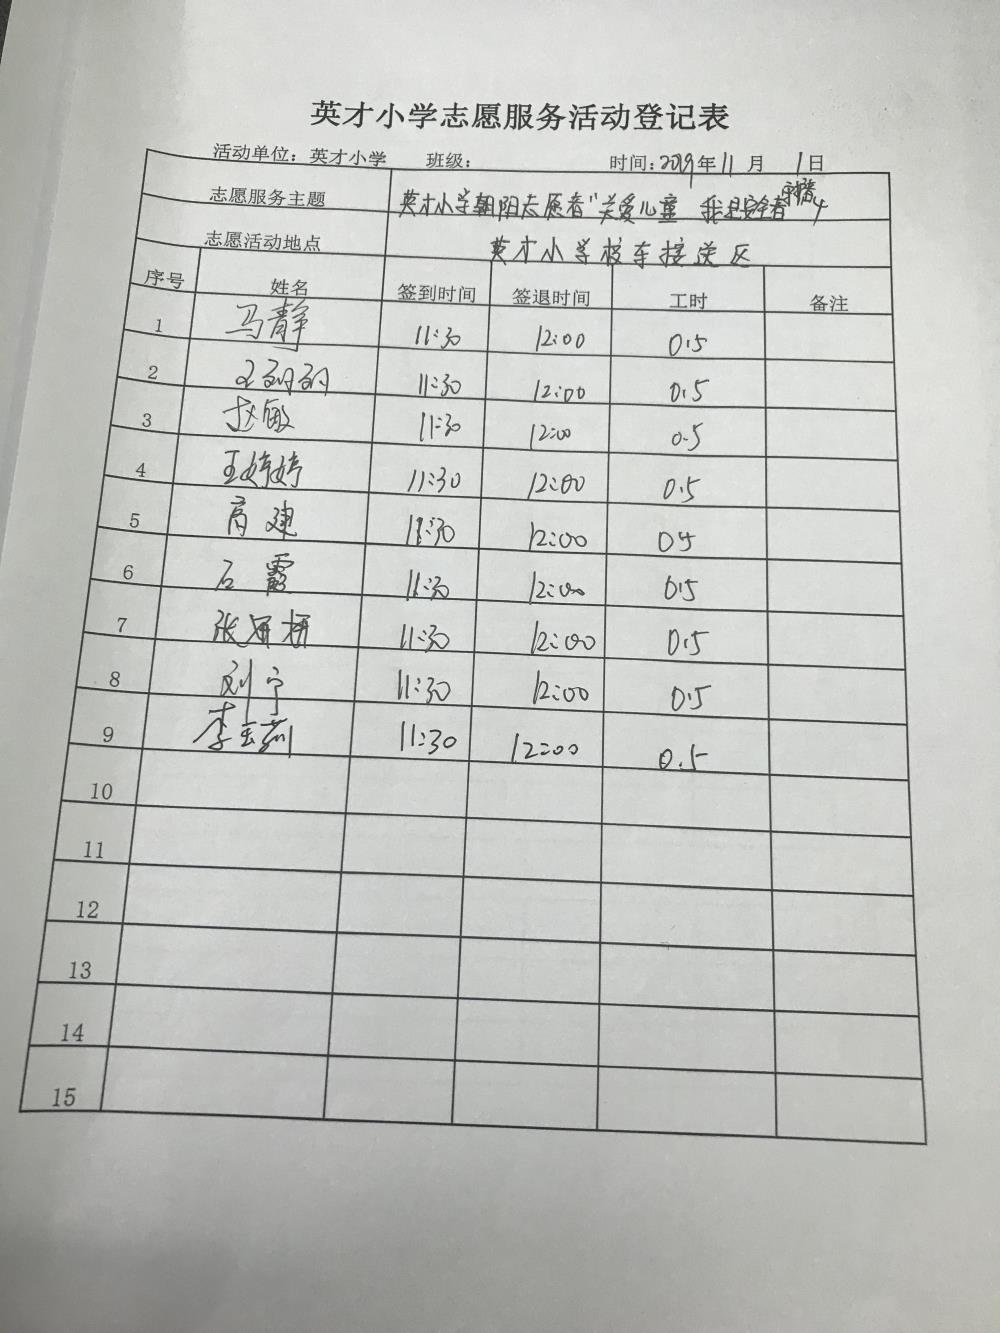 英才小学志愿服务活动登记表
活动单位：英才小学 班级： 时间：2019年11月 1日
志愿服务主题 英才小学朝阳志愿者"关爱儿童 我是安全宣传者"
志愿活动地点 英才小学校车接送区
序号 姓名 签到时间 签退时间 工时 备注
1 马静 11:30 12:00 0.5
2 11:30 12:00 0.5
3 赵敏 11:30 12:00 0.5
4 王婷婷 11:30 12:00 0.5
5 高建 11:30 12:00 0.5
6 石霞 11:30 12:00 0.5
7 张妍 11:30 12:00 0.5
8 刘宁 11:30 12:00 0.5
9 李玉莉 11:30 12:00 0.5
10
11
12
13
14
15